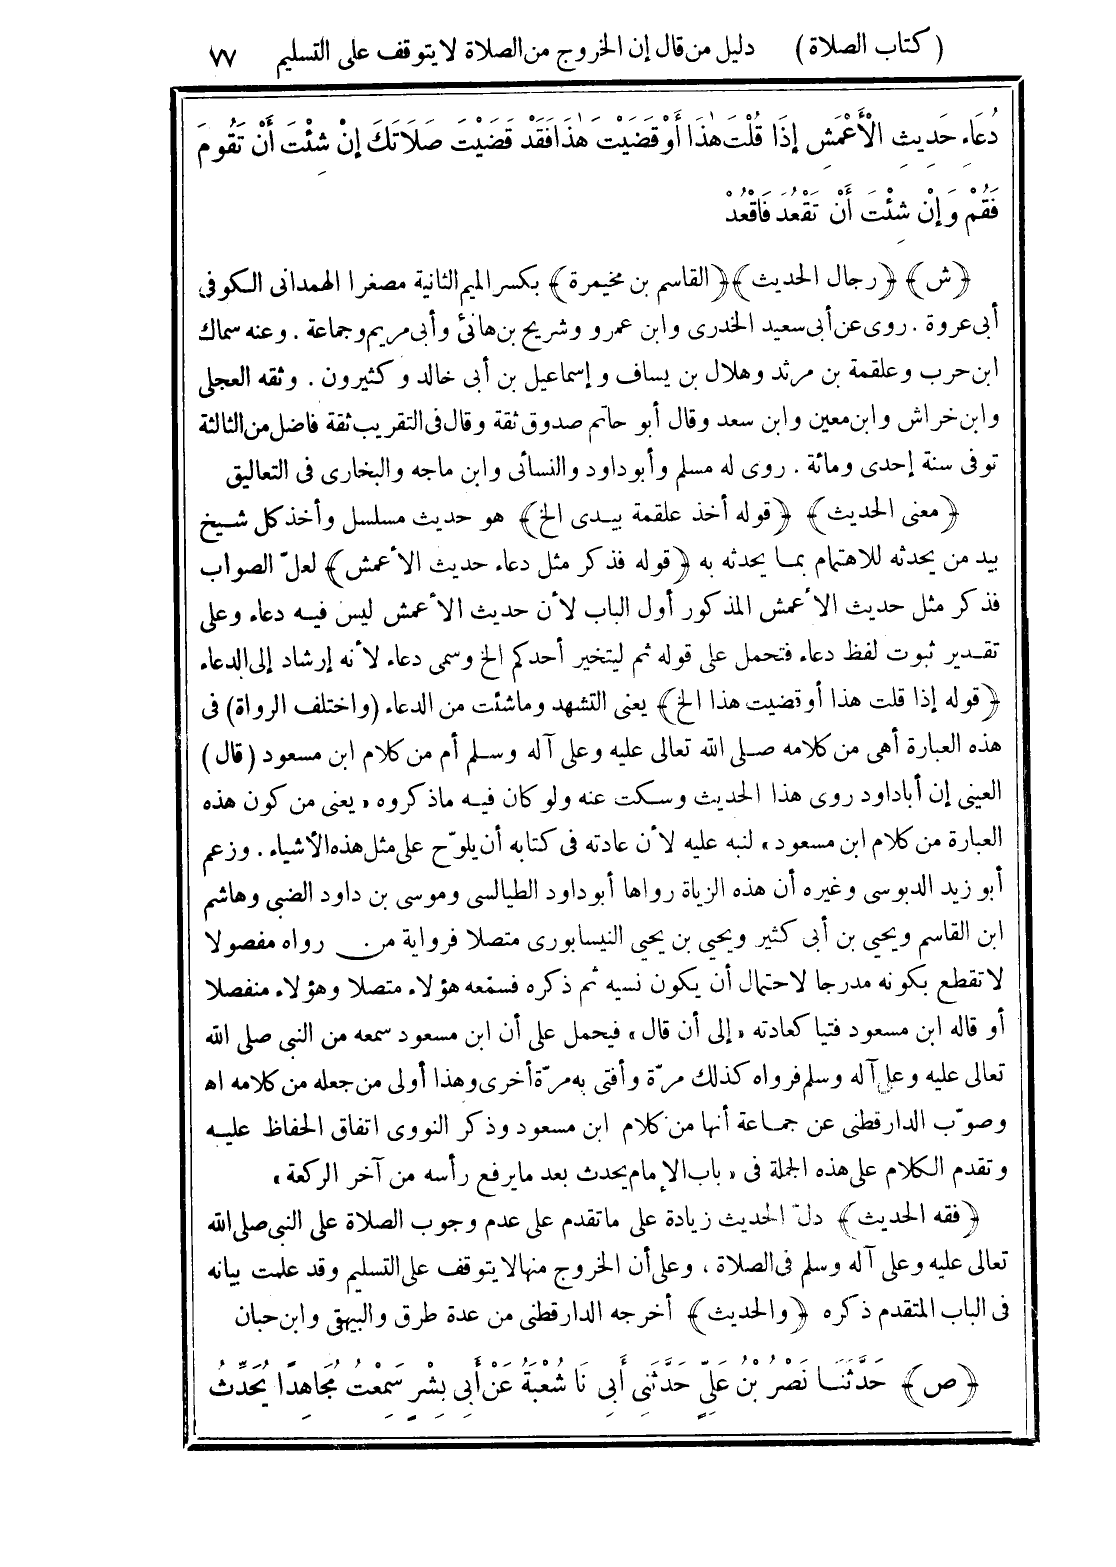 ( كتاب الصلاة ) دليل من قال إن الخروج من الصلاة لا يتوقف على التسليم ٧٧
دُعَاءِ حَدِيثِ الْأَعْمَشِ إِذَا قُلْتَ هٰذَا أَوْ قَضَيْتَ هٰذَا فَقَدْ قَضَيْتَ صَلَاتَكَ إِنْ شِئْتَ أَنْ تَقُومَ
فَقُمْ وَإِنْ شِئْتَ أَنْ تَقْعُدَ فَاقْعُدْ
﴿ش﴾ ﴿رجال الحديث﴾ ﴿القاسم بن مخيمرة﴾ بكسر الميم الثانية مصغرا الهمدانى الكوفى
أبى عروة . روى عن أبى سعيد الخدرى وابن عمرو وشريح بن هانئ وأبى مريم وجماعة . وعنه سماك
ابن حرب وعلقمة بن مرثد وهلال بن يساف وإسماعيل بن أبى خالد وكثيرون . وثقه العجلى
وابن خراش وابن معين وابن سعد وقال أبو حاتم صدوق ثقة وقال فى التقريب ثقة فاضل من الثالثة
توفى سنة إحدى ومائة . روى له مسلم وأبو داود والنسائى وابن ماجه والبخارى فى التعاليق
﴿معنى الحديث﴾ ﴿قوله أخذ علقمة بيدى الخ﴾ هو حديث مسلسل وأخذ كل شيخ
بيد من يحدثه للاهتمام بما يحدثه به ﴿قوله فذكر مثل دعاء حديث الأعمش﴾ لعلّ الصواب
فذكر مثل حديث الأعمش المذكور أول الباب لأن حديث الأعمش ليس فيه دعاء وعلى
تقدير ثبوت لفظ دعاء فتحمل على قوله ثم ليتخير أحدكم الخ وسمى دعاء لأنه إرشاد إلى الدعاء
﴿قوله إذا قلت هذا أو قضيت هذا الخ﴾ يعنى التشهد وماشئت من الدعاء (واختلف الرواة) فى
هذه العبارة أهى من كلامه صلى الله تعالى عليه وعلى آله وسلم أم من كلام ابن مسعود (قال)
العينى إن أباداود روى هذا الحديث وسكت عنه ولو كان فيه ماذكروه «يعنى من كون هذه
العبارة من كلام ابن مسعود» لنبه عليه لأن عادته فى كتابه أن يلوّح على مثل هذه الأشياء . وزعم
أبو زيد الدبوسى وغيره أن هذه الزياة رواها أبو داود الطيالسى وموسى بن داود الضبى وهاشم
ابن القاسم ويحيى بن أبى كثير ويحيى بن يحيى النيسابورى متصلا فرواية من رواه مفصولا
لا تقطع بكونه مدرجا لاحتمال أن يكون نسيه ثم ذكره فسمعه هؤلاء متصلا وهؤلاء منفصلا
أو قاله ابن مسعود فتيا كعادته «إلى أن قال» فيحمل على أن ابن مسعود سمعه من النبى صلى الله
تعالى عليه وعلى آله وسلم فرواه كذلك مرّة وأفتى به مرّة أخرى وهذا أولى من جعله من كلامه اه
وصوّب الدارقطنى عن جماعة أنها من كلام ابن مسعود وذكر النووى اتفاق الحفاظ عليه
وتقدم الكلام على هذه الجملة فى «باب الإمام يحدث بعد مايرفع رأسه من آخر الركعة»
﴿فقه الحديث﴾ دلّ الحديث زيادة على ماتقدم على عدم وجوب الصلاة على النبى صلى الله
تعالى عليه وعلى آله وسلم فى الصلاة ، وعلى أن الخروج منها لا يتوقف على التسليم وقد علمت بيانه
فى الباب المتقدم ذكره ﴿والحديث﴾ أخرجه الدارقطنى من عدة طرق والبيهقى وابن حبان
﴿ص﴾ حَدَّثَنَا نَصْرُ بْنُ عَلِيٍّ حَدَّثَنِى أَبِى نَا شُعْبَةُ عَنْ أَبِى بِشْرٍ سَمِعْتُ مُجَاهِدًا يُحَدِّثُ